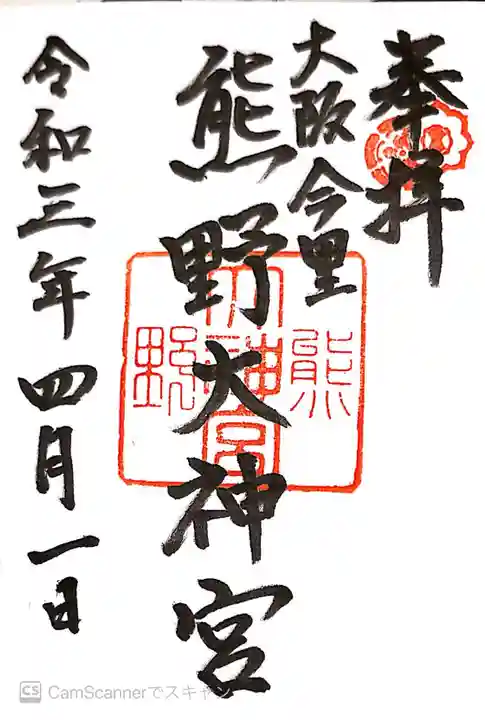 奉拝
大阪今里
熊野大神宮
熊
大神宮
野
令和三年四月一日
CS CamScannerでスキャン